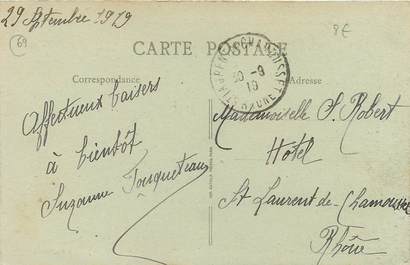 29 Septembre 1919
69
8€
CARTE POSTALE
Correspondance
Adresse
30-9
19
Affectueux baisers
à bientôt
Suzanne
Mademoiselle S. Robert
Hôtel
St Laurent-de-Chamousset
Rhône